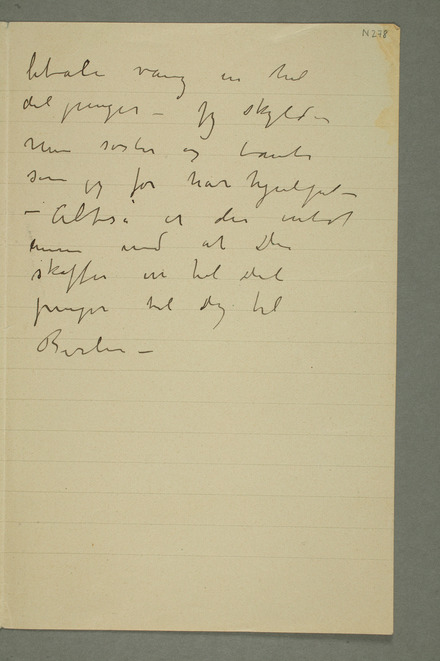 N 278
betale
en hel
del penger – Jeg skylder
min søster og tante
som jeg før har hjulpet –
– Altså er det
med at De
skaffer en hel del
penger til dig til
Berlin –